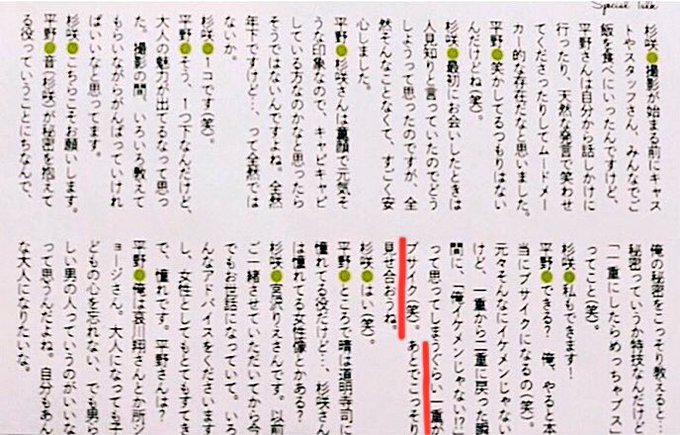 Special Talk
杉咲●撮影が始まる前にキャス
トやスタッフさん、みんなでご
飯を食べにいったんですけど、
平野さんは自分から話しかけに
行ったり、天然な発言で笑わせ
てくださったりしてムードメー
カー的な存在だなと思いました。
平野●笑かしてるつもりはない
んだけどね(笑)。
杉咲●最初にお会いしたときは
人見知りと言っていたのでどう
しようって思ったのですが、全
然そんなことなくて、すごく安
心しました。
平野●杉咲さんは童顔で元気そ
うな印象なので、キャピキャピ
している方なのかなと思ったら
そうではないんですよね。全然
年下ですけど…、って全然では
ないか。
杉咲●1コです(笑)。
平野●そう、1つ下なんだけど、
大人の魅力が出てるなって思っ
た。撮影の間、いろいろ教えて
もらいながらがんばっていけれ
ばいいなと思ってます。
杉咲●こちらこそお願いします。
平野●音(杉咲)が秘密を抱えて
る役っていうことにちなんで、
俺の秘密をこっそり教えると…
秘密っていうか特技なんだけど
「一重にしたらめっちゃブス」
ってこと(笑)。
杉咲●私もできます!
平野●できる? 俺、やると本
当にブサイクになるの(笑)。
元々そんなにイケメンじゃない
けど、一重から二重に戻った瞬
間に、「俺イケメンじゃない!?」
って思ってしまうぐらい一重が
ブサイク(笑)。あとでこっそり
見せ合おうね。
杉咲●はい(笑)。
平野●ところで晴は道明寺司に
憧れてる役だけど…、杉咲さん
は憧れてる女性像とかある?
杉咲●宮沢りえさんです。以前
ご一緒させていただいてから今
でもお世話になっていて。いろ
んなアドバイスをくださいます
し、女性としてもとてもすてき
で、憧れです。平野さんは?
平野●俺は哀川翔さんとか所ジ
ョージさん。大人になっても子
どもの心を忘れない、でも男ら
しい男の人っていうのがいいな
って思うんだよね。自分もあん
な大人になりたいな。